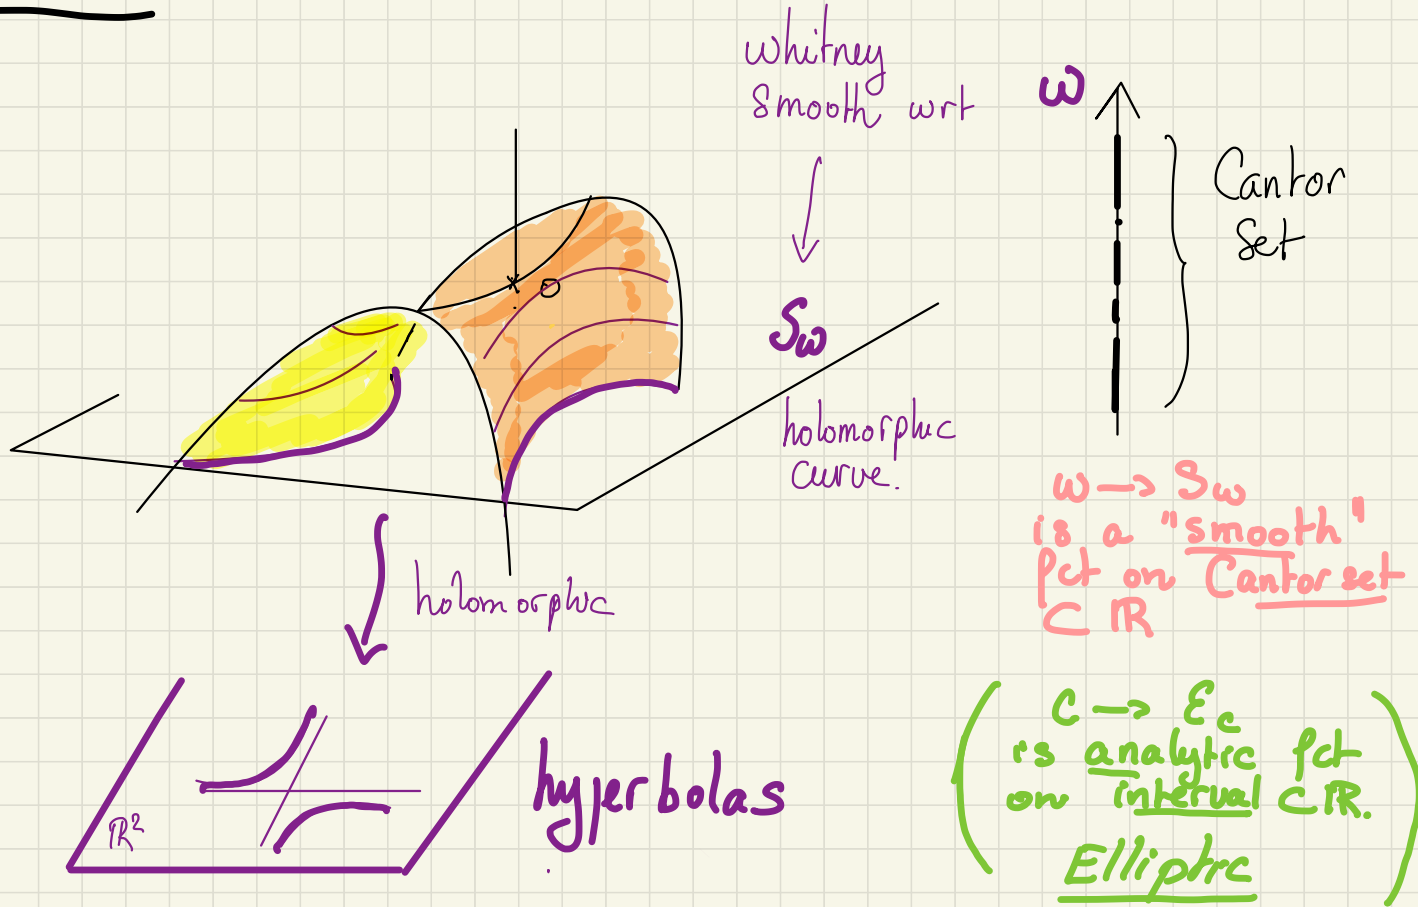 Whitney
Smooth wrt
ω
Cantor
Set
Sω
holomorphic
curve.
ω → Sω
is a "smooth"
fct on Cantor set
⊂ ℝ
holomorphic
C → Ec
is analytic fct
on interval ⊂ ℝ.
Elliptic
hyperbolas
ℝ²